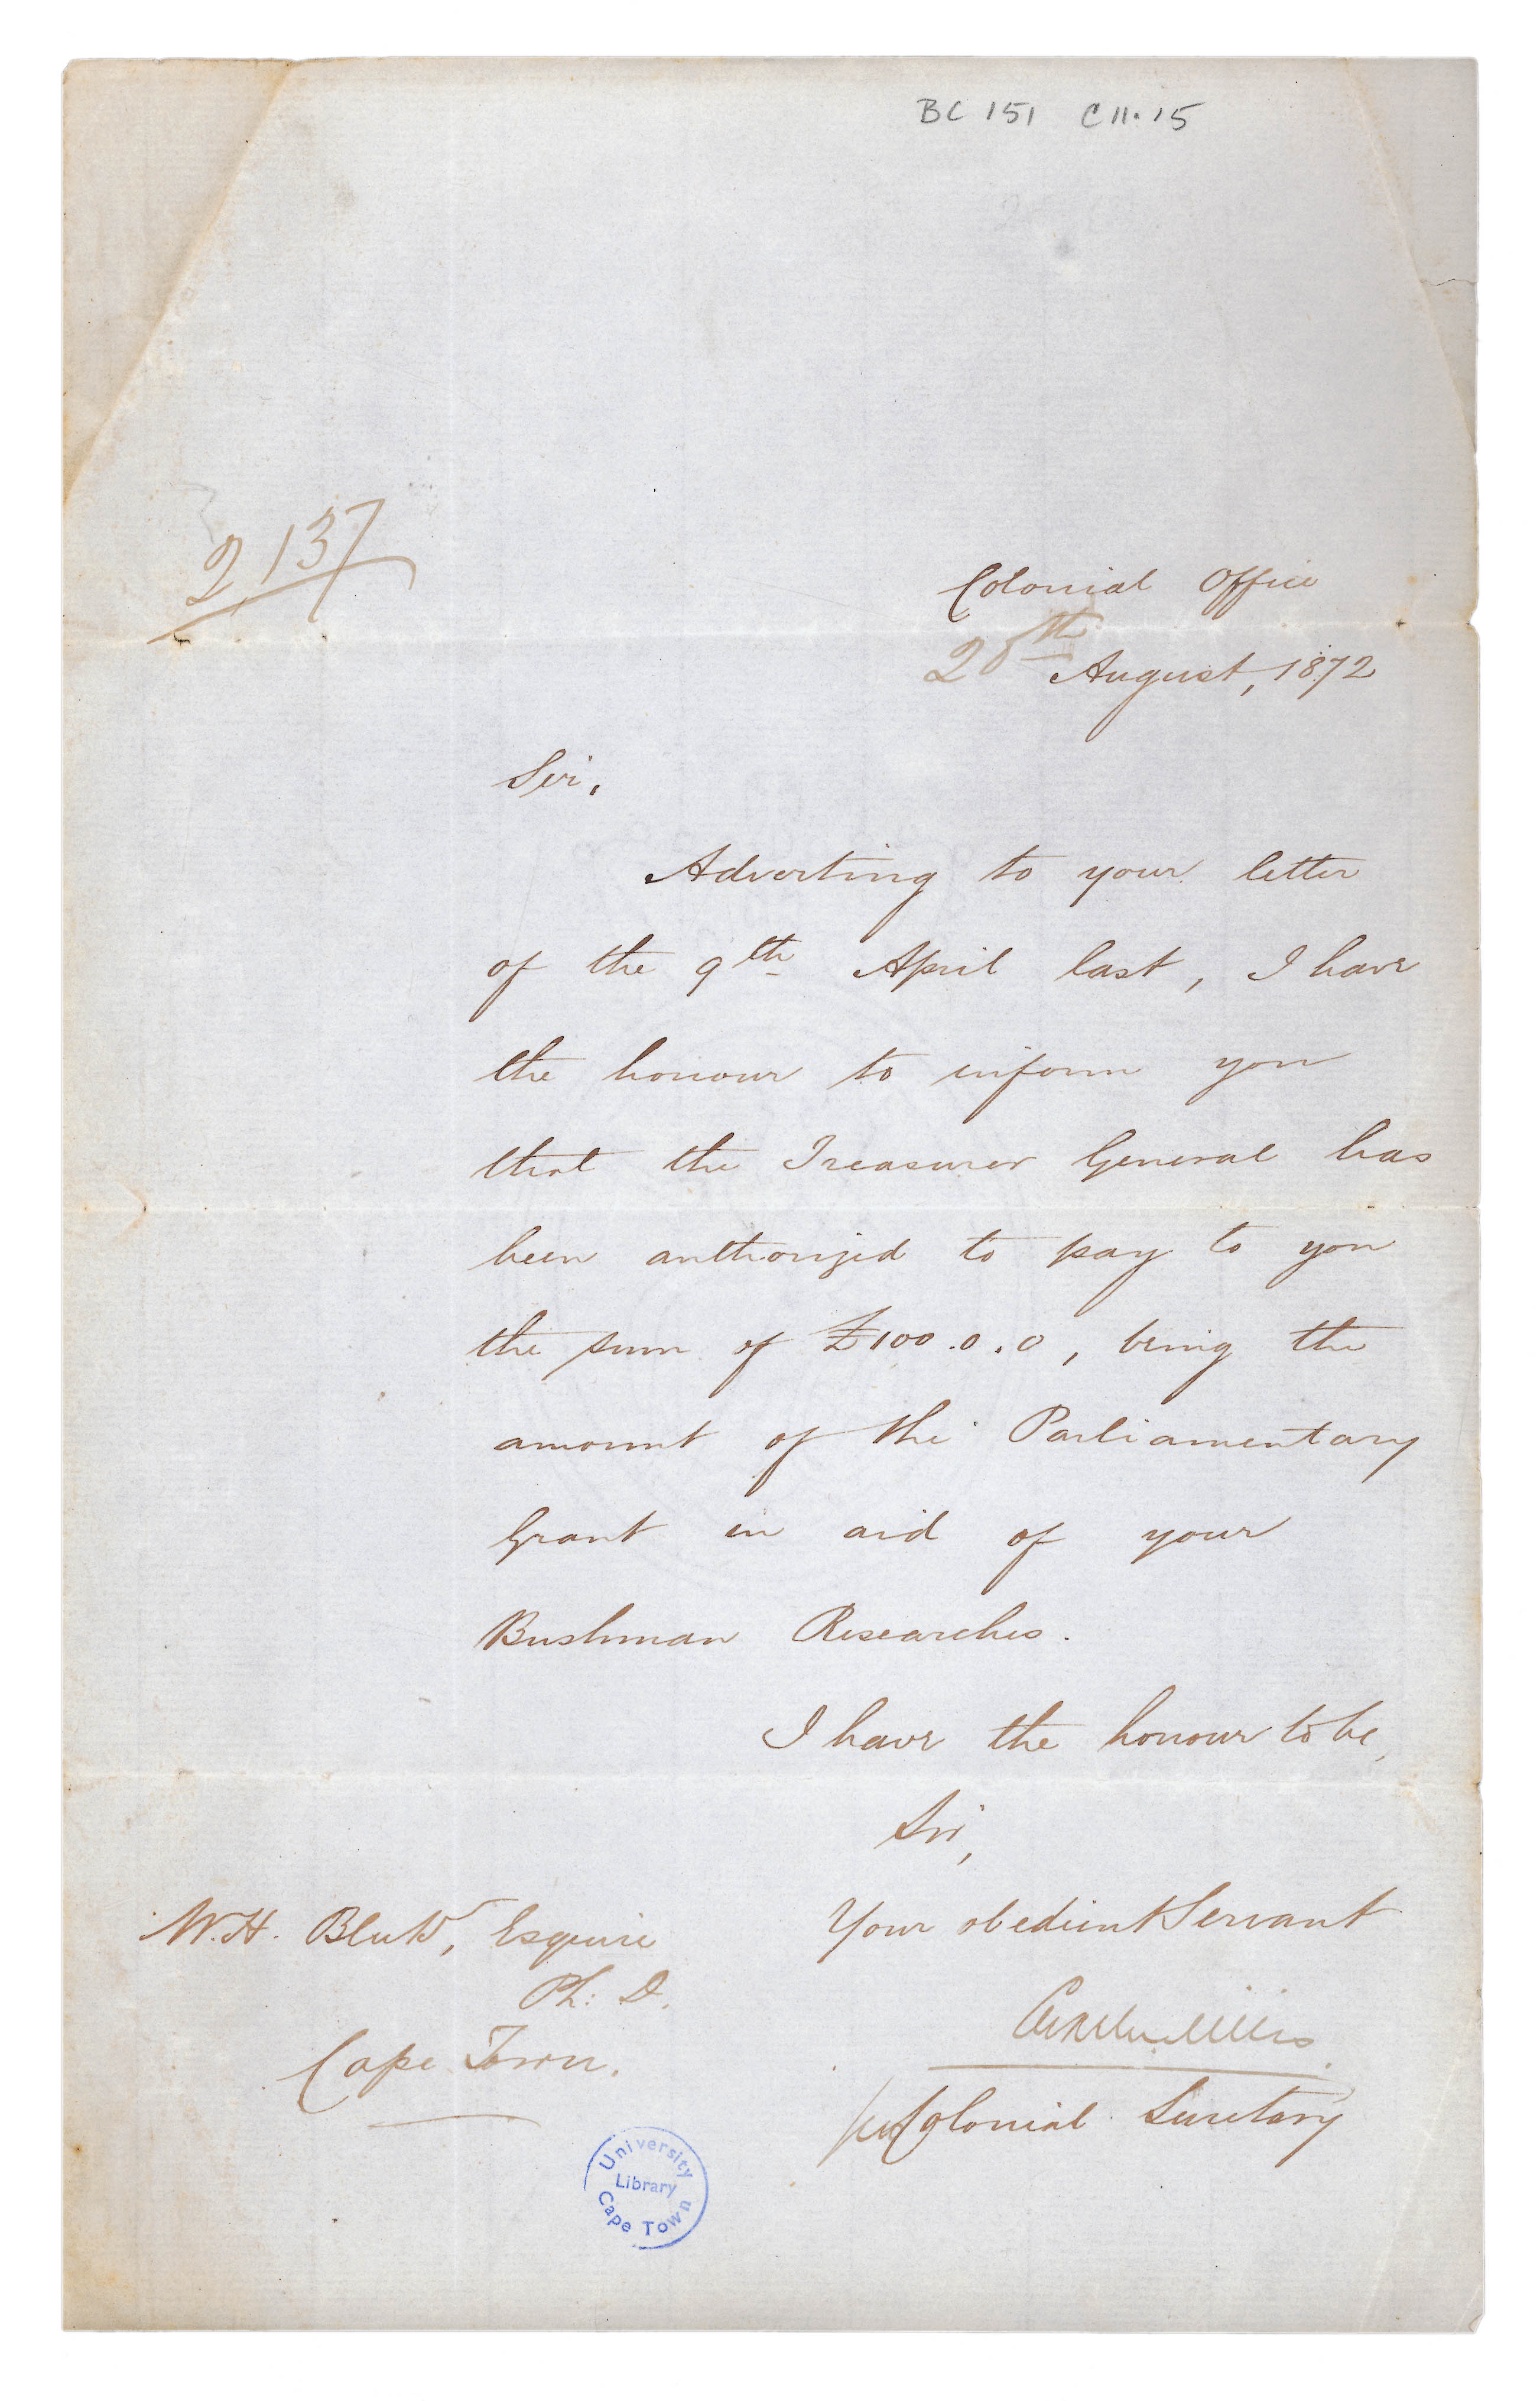 BC 151 C11.15
2137
Colonial Office
August, 1872
Sir,
Adverting to your letter
of the 9th April last, I have
the honour to inform you
that the Treasurer General has
been authorized to pay to you
the sum of £100.0.0, being the
amount of the Parliamentary
Grant in aid of your
Bushman Researches.
I have the honour to be,
Sir,
Your obedient Servant
W.H. Bleek, Esquire
Ph: D.
Cape Town.
Colonial Secretary
University
Library
Cape Town